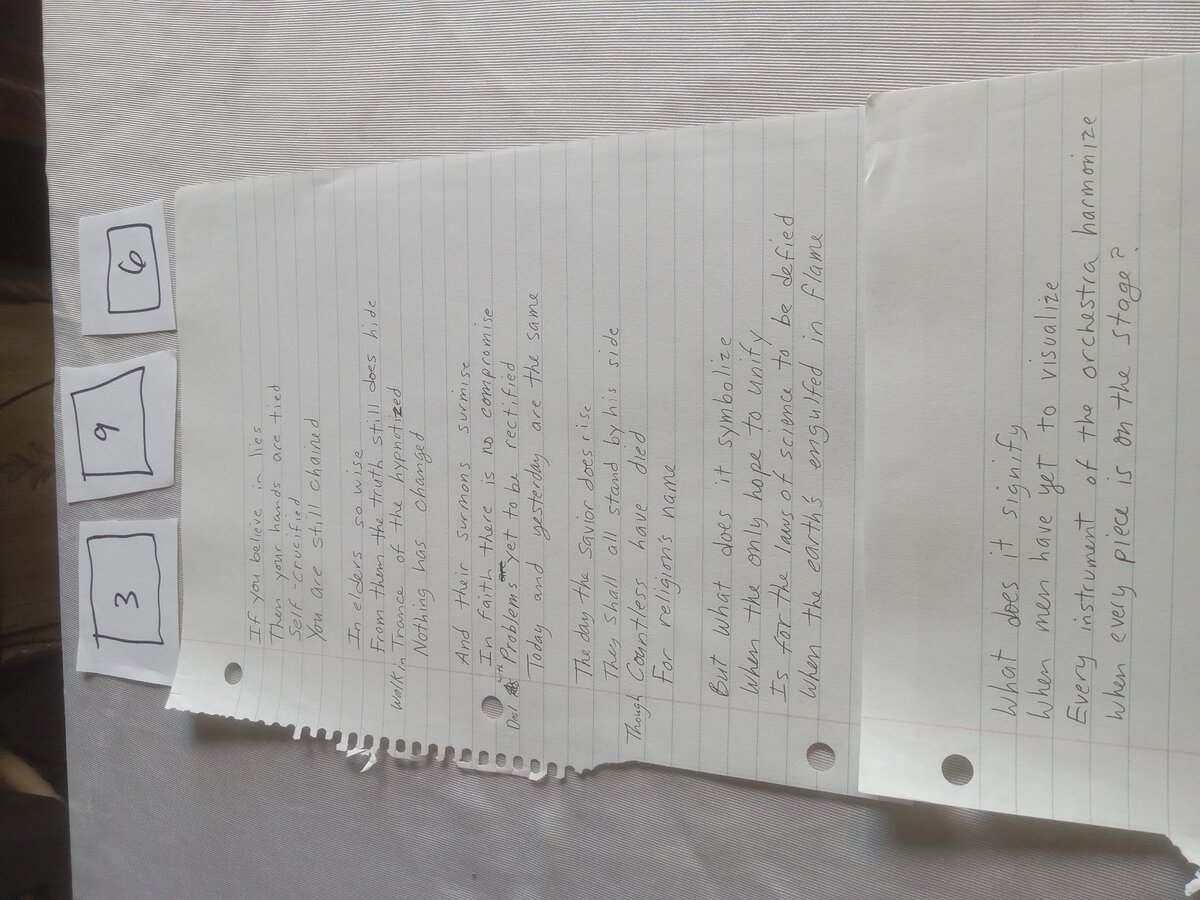 3 9 6
If you believe in lies
Then your hands are tied
Self-crucified
You are still chained
In elders so wise
From them the truth still does hide
Walk in Trance of the hypnotized
Nothing has changed
And their surmons surmise
In faith there is no compromise
with Problems yet to be rectified
Today and yesterday are the same
The day the savior does rise
They shall all stand by his side
Though Countless have died
For religion's name
But what does it symbolize
When the only hope to unify
Is for the laws of science to be defied
When the earth's engulfed in flame
What does it signify
When men have yet to visualize
Every instrument of the orchestra harmonize
When every piece is on the stage?